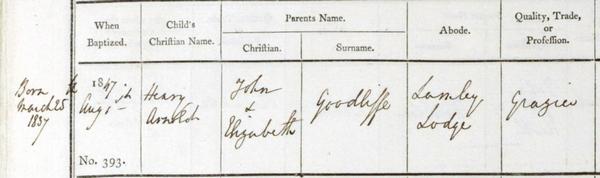 When
Baptized.
Child's
Christian Name.
Parents Name.
Christian.
Surname.
Abode.
Quality, Trade,
or
Profession.
Born
March 25th
1837
1847
Aug
No. 393.
Henry
Arnold
John
&
Elizabeth
Goodliffe
Lamley
Lodge
Grazier